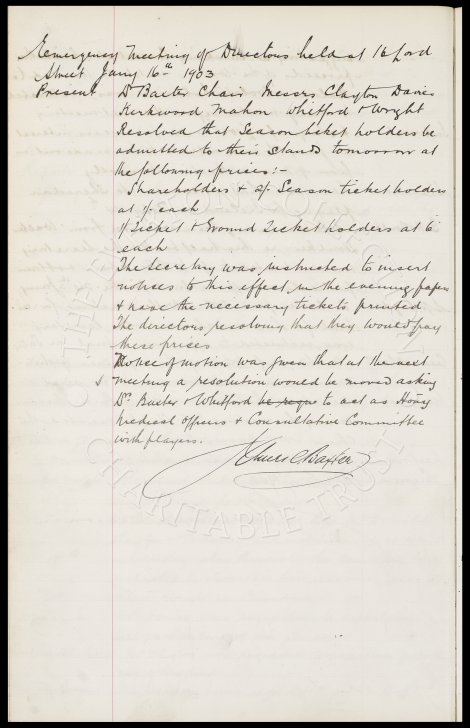 Emergency Meeting of Directors held at 16 Cord
Street Jany 16th 1903
Present Dr Baxter Chair Messrs Clayton Davies
Kirkwood Mahon Whitford & Wright
Resolved that Season ticket holders be
admitted to their stands tomorrow at
the following prices:-
Shareholders & Season ticket holders
at 1/- each
Ticket & Ground Ticket holders at 6
each
The Secretary was instructed to insert
notices to this effect in the evening papers
& have the necessary tickets printed
The directors resolving that they would pay
these prices
Notice of motion was given that at the next
meeting a resolution would be moved asking
Dr Baxter & Whitford to act as Hony
Medical Officers & Consultative Committee
with players.
James C Baxter
THE EVERTON COLLECTION
CHARITABLE TRUST